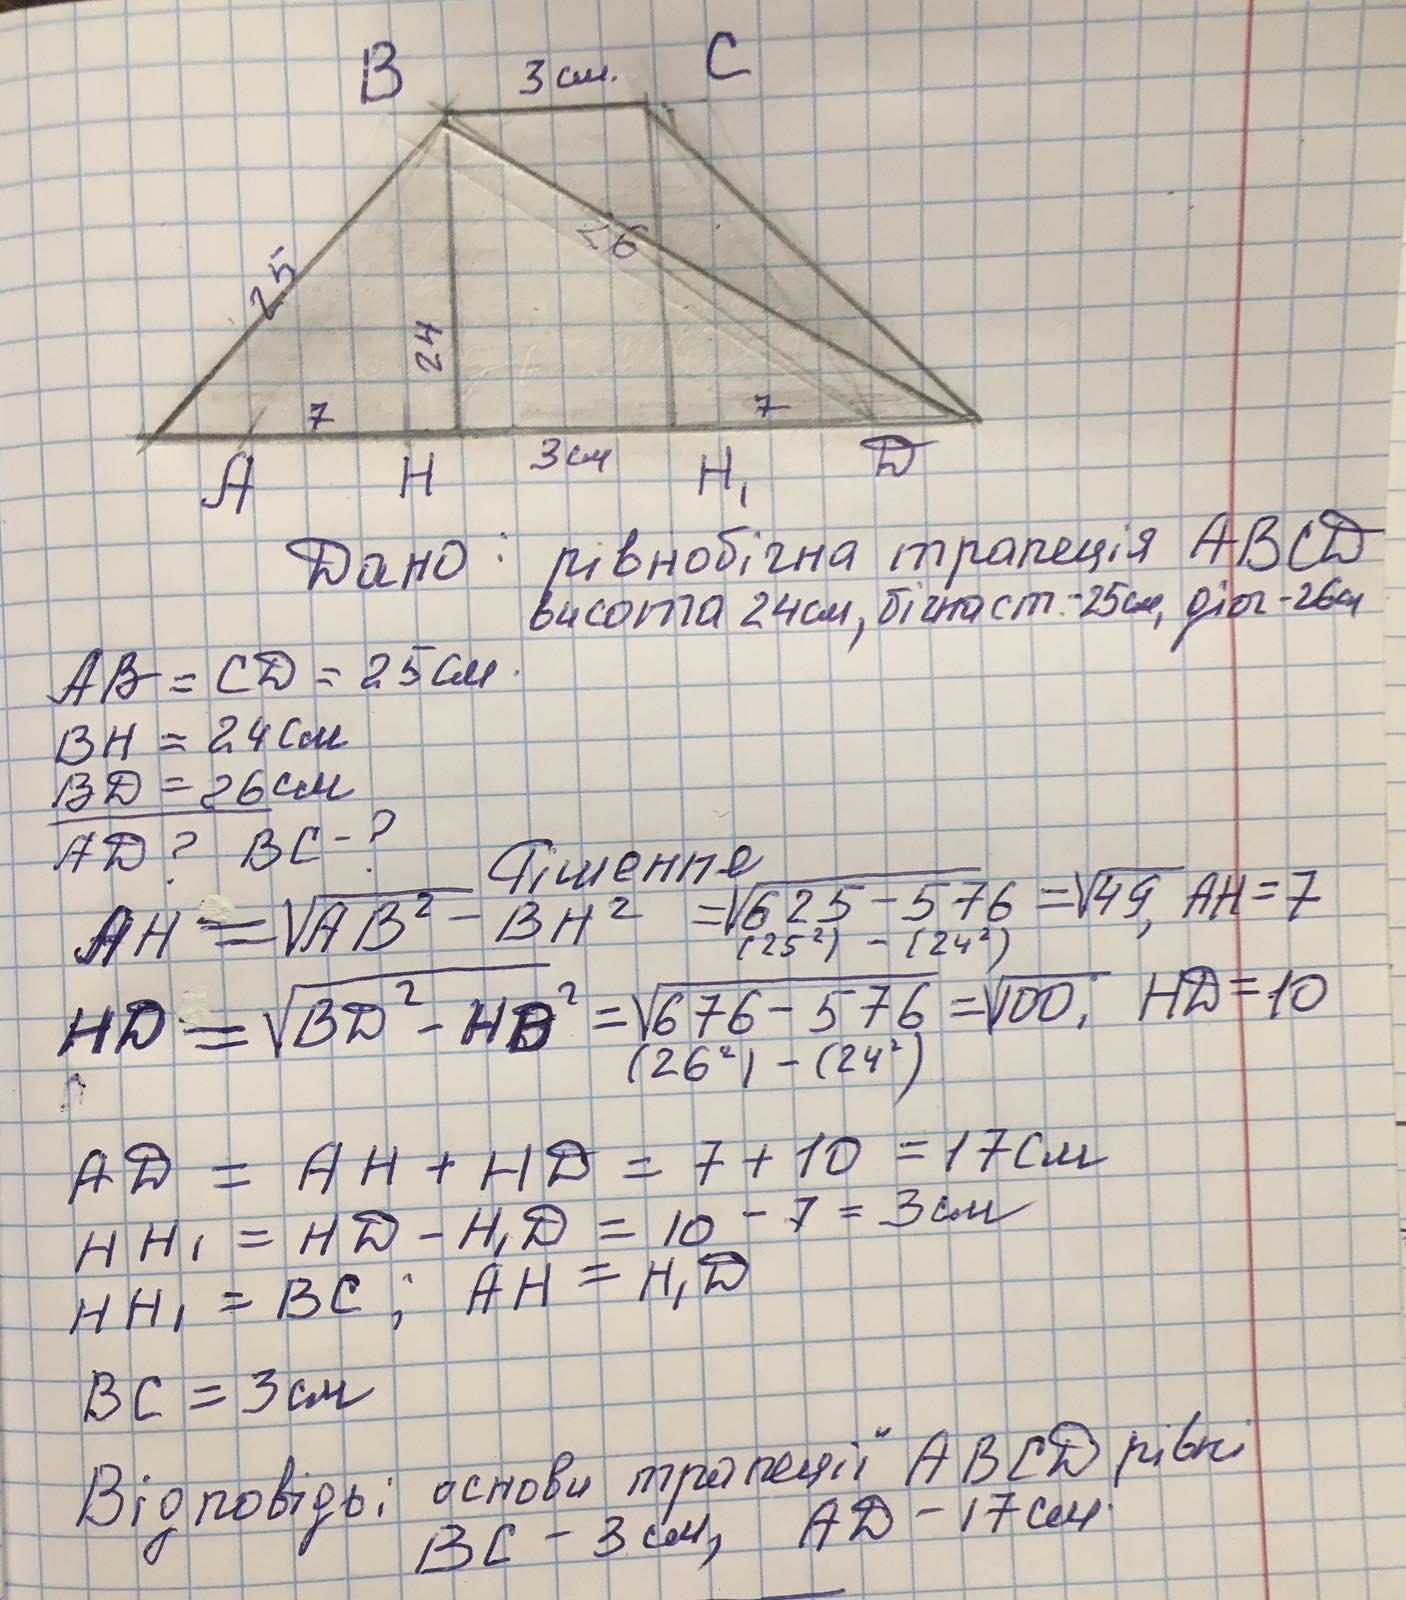 B 3 см. C
25
26
24
7 7
A H 3см H₁ D
Дано: рівнобічна трапеція ABCD
висота 24см, бічна ст.-25см, діаг-26см
AB = CD = 25см.
BH = 24см
BD = 26см
AD? BC-?
Рішення
AH = √AB² - BH² = √625 - 576 = √49, AH = 7
(25²) - (24²)
HD = √BD² - HB² = √676 - 576 = √100; HD = 10
(26²) - (24²)
AD = AH + HD = 7 + 10 = 17см
HH₁ = HD - H₁D = 10 - 7 = 3см
HH₁ = BC; AH = H₁D
BC = 3см
Відповідь: основи трапеції ABCD рівні
BC - 3см, AD - 17см.